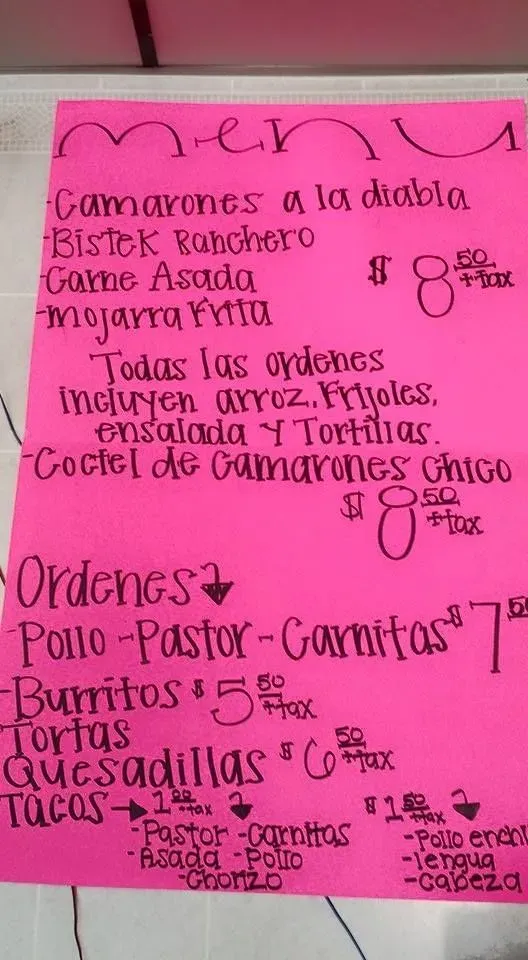 menu
-Camarones a la diabla
-Bistek Ranchero
-Carne Asada $ 8 50 +tax
-mojarra Frita
Todas las ordenes
incluyen arroz, Frijoles,
ensalada y Tortillas.
-Coctel de Camarones chico
$ 8 50 +tax
Ordenes
-Pollo -Pastor -Carnitas $ 7
-Burritos $ 5 50 +tax
Tortas
Quesadillas $ 6 50 +tax
TACOS → 1 00 +tax $ 1 50 +tax
-Pastor -Carnitas -Pollo
-Asada -Pollo -lengua
-Chorizo -cabeza